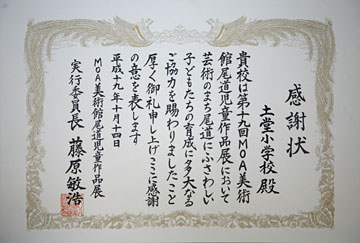 感謝状
土堂小学校 殿
貴校は第十九回MOA美術
館尾道児童作品展において
芸術のまち尾道にふさわしい
子どもたちの育成に多大なる
ご協力を賜わりましたこと
厚く御礼申し上げここに感謝
の意を表します
平成十九年十月十四日
MOA美術館尾道児童作品展
実行委員長 藤原敏浩